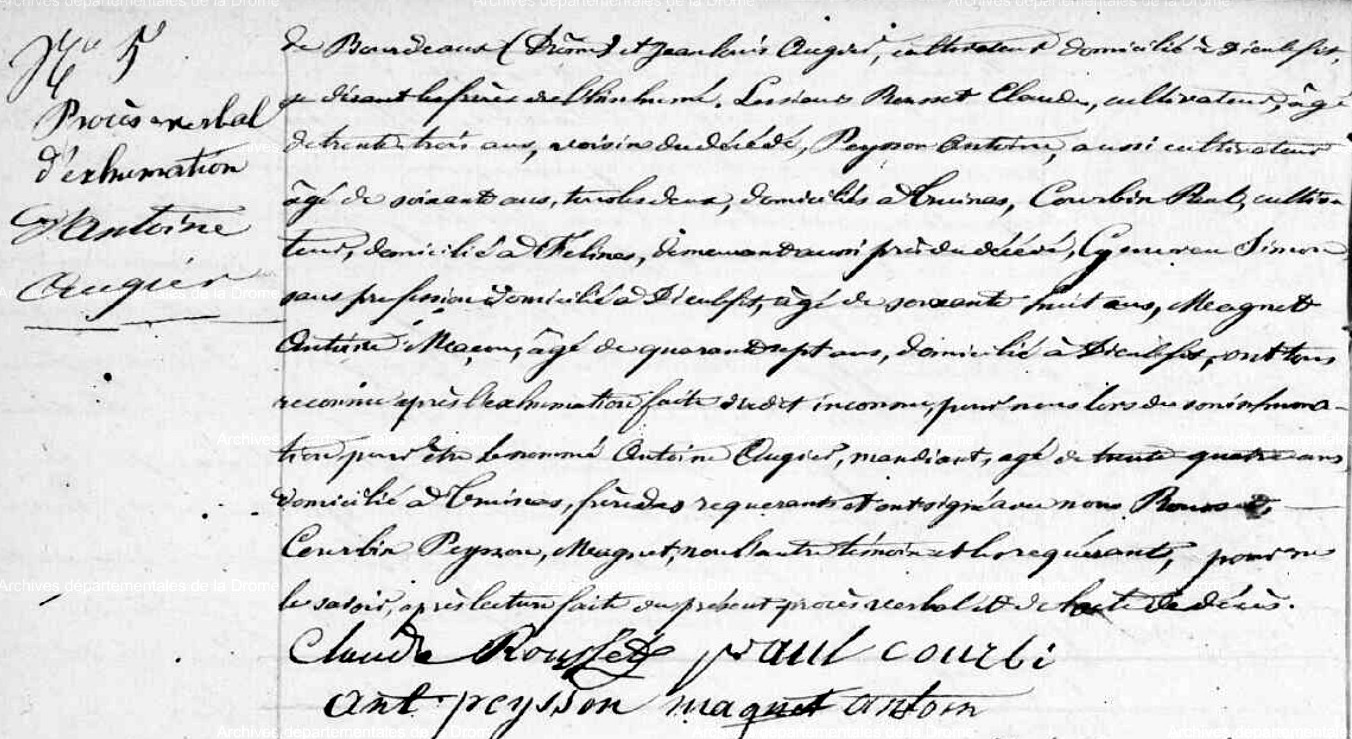 N° 5
Procès verbal
d'exhumation
d'Antoine
Augier
de Bourdeaux (Drôme) et Jean louis Augier, cultivateur domicilié à Dieulefit,
se disant les frères de l'inhumé. Les sieurs Rousset Claude, cultivateur, âgé
de trente trois ans, voisin du décédé, Peysson Antoine, aussi cultivateur
âgé de soixante ans, tous les deux, domiciliés à Truinas, Courbin Paul, cultiva-
teur, domicilié à Félines, demeurant aussi près du décédé, Simon
sans profession domicilié à Dieulefit, âgé de soixante huit ans, Magnet
Antoine Maçon, âgé de quarante sept ans, domicilié à Dieulefit, ont tous
reconnu après l'exhumation faite dudit inconnu, par nous lors de son inhuma-
tion pour être le nommé Antoine Augier, mandiant, agé de trente quatre ans
domicilié à Truinas, frère des requerants et ont signé avec nous Rousset,
Courbin Peysson, Magnet, non l'autre témoin et les requérants, pour ne
le savoir, après lecture faite du présent procès verbal et de l'acte de décès.
Claude Rousset paul courbi
ant peysson magnet antoin